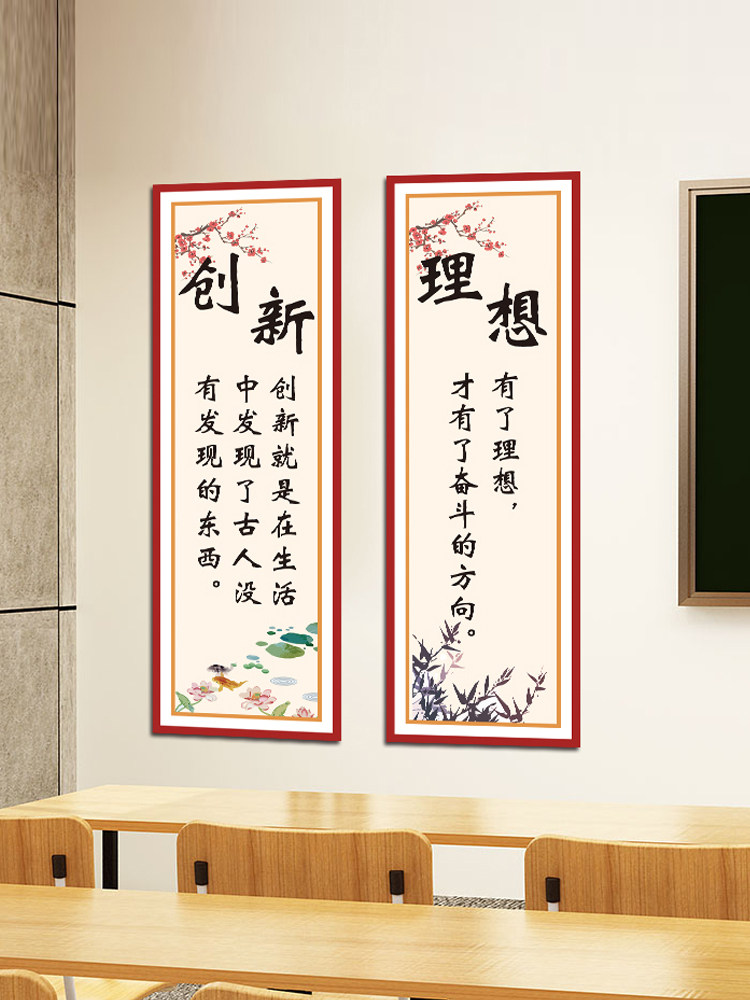 创新
创新就是在生活
中发现了古人没
有发现的东西。
理想
有了理想，
才有了奋斗的方向。